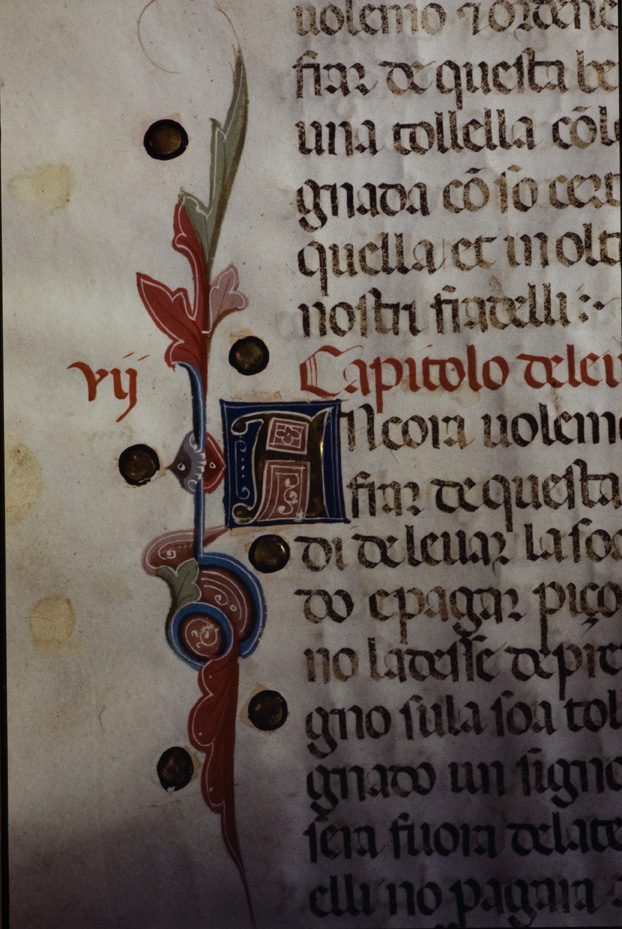 uolemo ⁊ ordene
frar de questa be
una tollella cōl
gnada cō so cert
quella et in olt
nostri fradelli :·
vij Capitolo de leu
ANcora uolem
frar de questa
di de leuar la so
do e pagar piço
no la desse de pic
gno sula soa tol
gnado un signo
sera fuora de la te
elli no pagara :